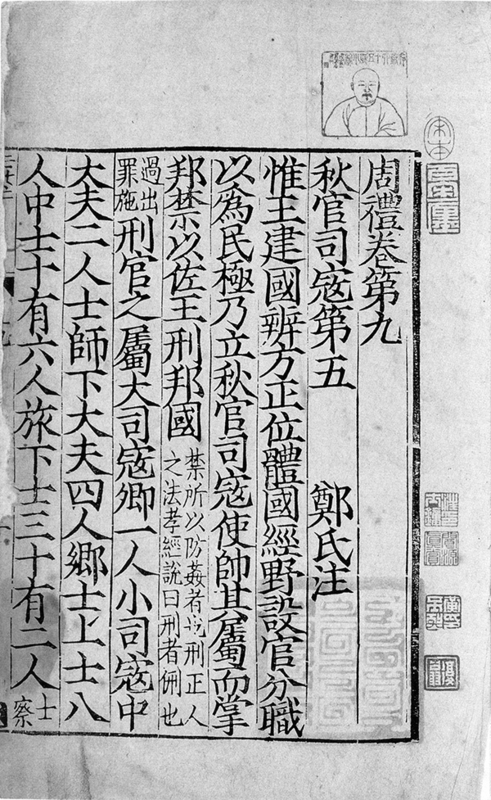 宋本
周禮卷第九
秋官司寇第五 鄭氏注
惟王建國辨方正位體國經野設官分職
以為民極乃立秋官司寇使帥其屬而掌
邦禁以佐王刑邦國 禁所以防姦者也刑正人
之法孝經說曰刑者侀也
過出
罪施 刑官之屬大司寇卿一人小司寇中
大夫二人士師下大夫四人鄉士上士八
人中士十有六人旅下士三十有二人 士
察